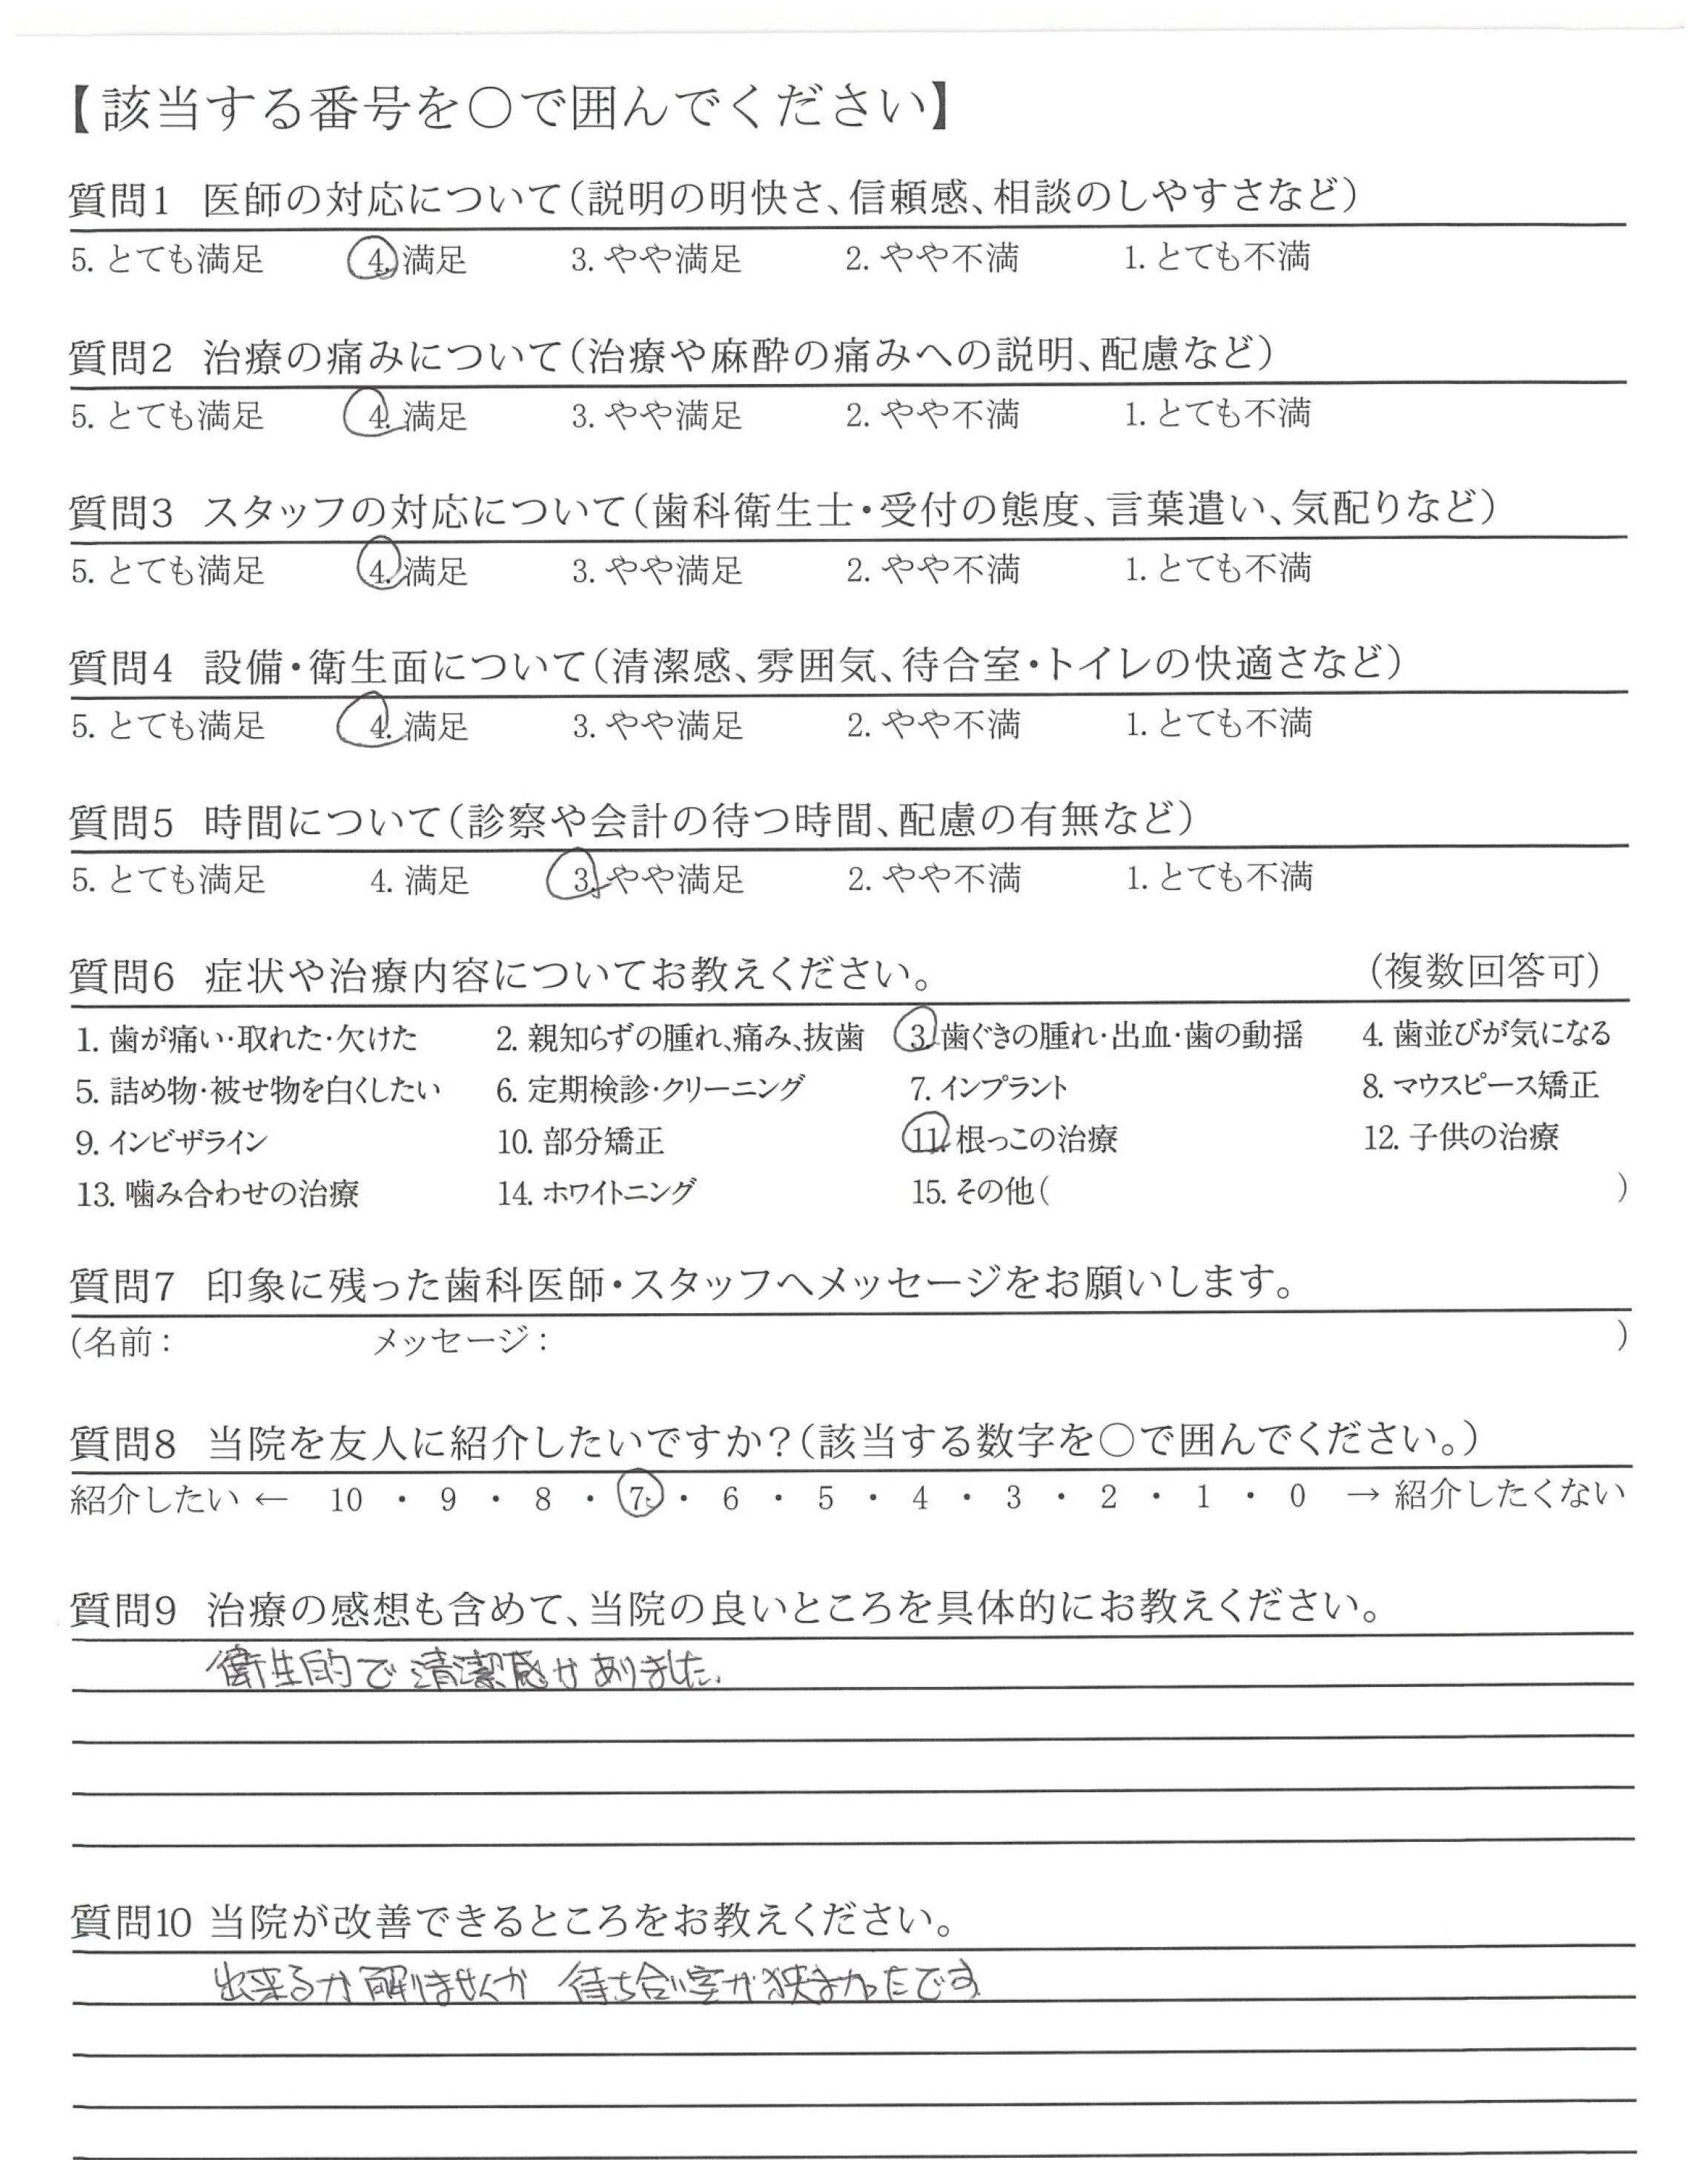 【該当する番号を○で囲んでください】
質問1 医師の対応について(説明の明快さ、信頼感、相談のしやすさなど)
5. とても満足 4. 満足 3. やや満足 2. やや不満 1. とても不満
質問2 治療の痛みについて(治療や麻酔の痛みへの説明、配慮など)
5. とても満足 4. 満足 3. やや満足 2. やや不満 1. とても不満
質問3 スタッフの対応について(歯科衛生士・受付の態度、言葉遣い、気配りなど)
5. とても満足 4. 満足 3. やや満足 2. やや不満 1. とても不満
質問4 設備・衛生面について(清潔感、雰囲気、待合室・トイレの快適さなど)
5. とても満足 4. 満足 3. やや満足 2. やや不満 1. とても不満
質問5 時間について(診察や会計の待つ時間、配慮の有無など)
5. とても満足 4. 満足 3. やや満足 2. やや不満 1. とても不満
質問6 症状や治療内容についてお教えください。 (複数回答可)
1. 歯が痛い・取れた・欠けた 2. 親知らずの腫れ、痛み、抜歯 3. 歯ぐきの腫れ・出血・歯の動揺 4. 歯並びが気になる
5. 詰め物・被せ物を白くしたい 6. 定期検診・クリーニング 7. インプラント 8. マウスピース矯正
9. インビザライン 10. 部分矯正 11. 根っこの治療 12. 子供の治療
13. 噛み合わせの治療 14. ホワイトニング 15. その他( )
質問7 印象に残った歯科医師・スタッフへメッセージをお願いします。
(名前： メッセージ： )
質問8 当院を友人に紹介したいですか?(該当する数字を○で囲んでください。)
紹介したい ← 10 ・ 9 ・ 8 ・ 7 ・ 6 ・ 5 ・ 4 ・ 3 ・ 2 ・ 1 ・ 0 → 紹介したくない
質問9 治療の感想も含めて、当院の良いところを具体的にお教えください。
衛生的で清潔感がありました。
質問10 当院が改善できるところをお教えください。
出来るか解りませんが 待ち合い室が狭まかったです